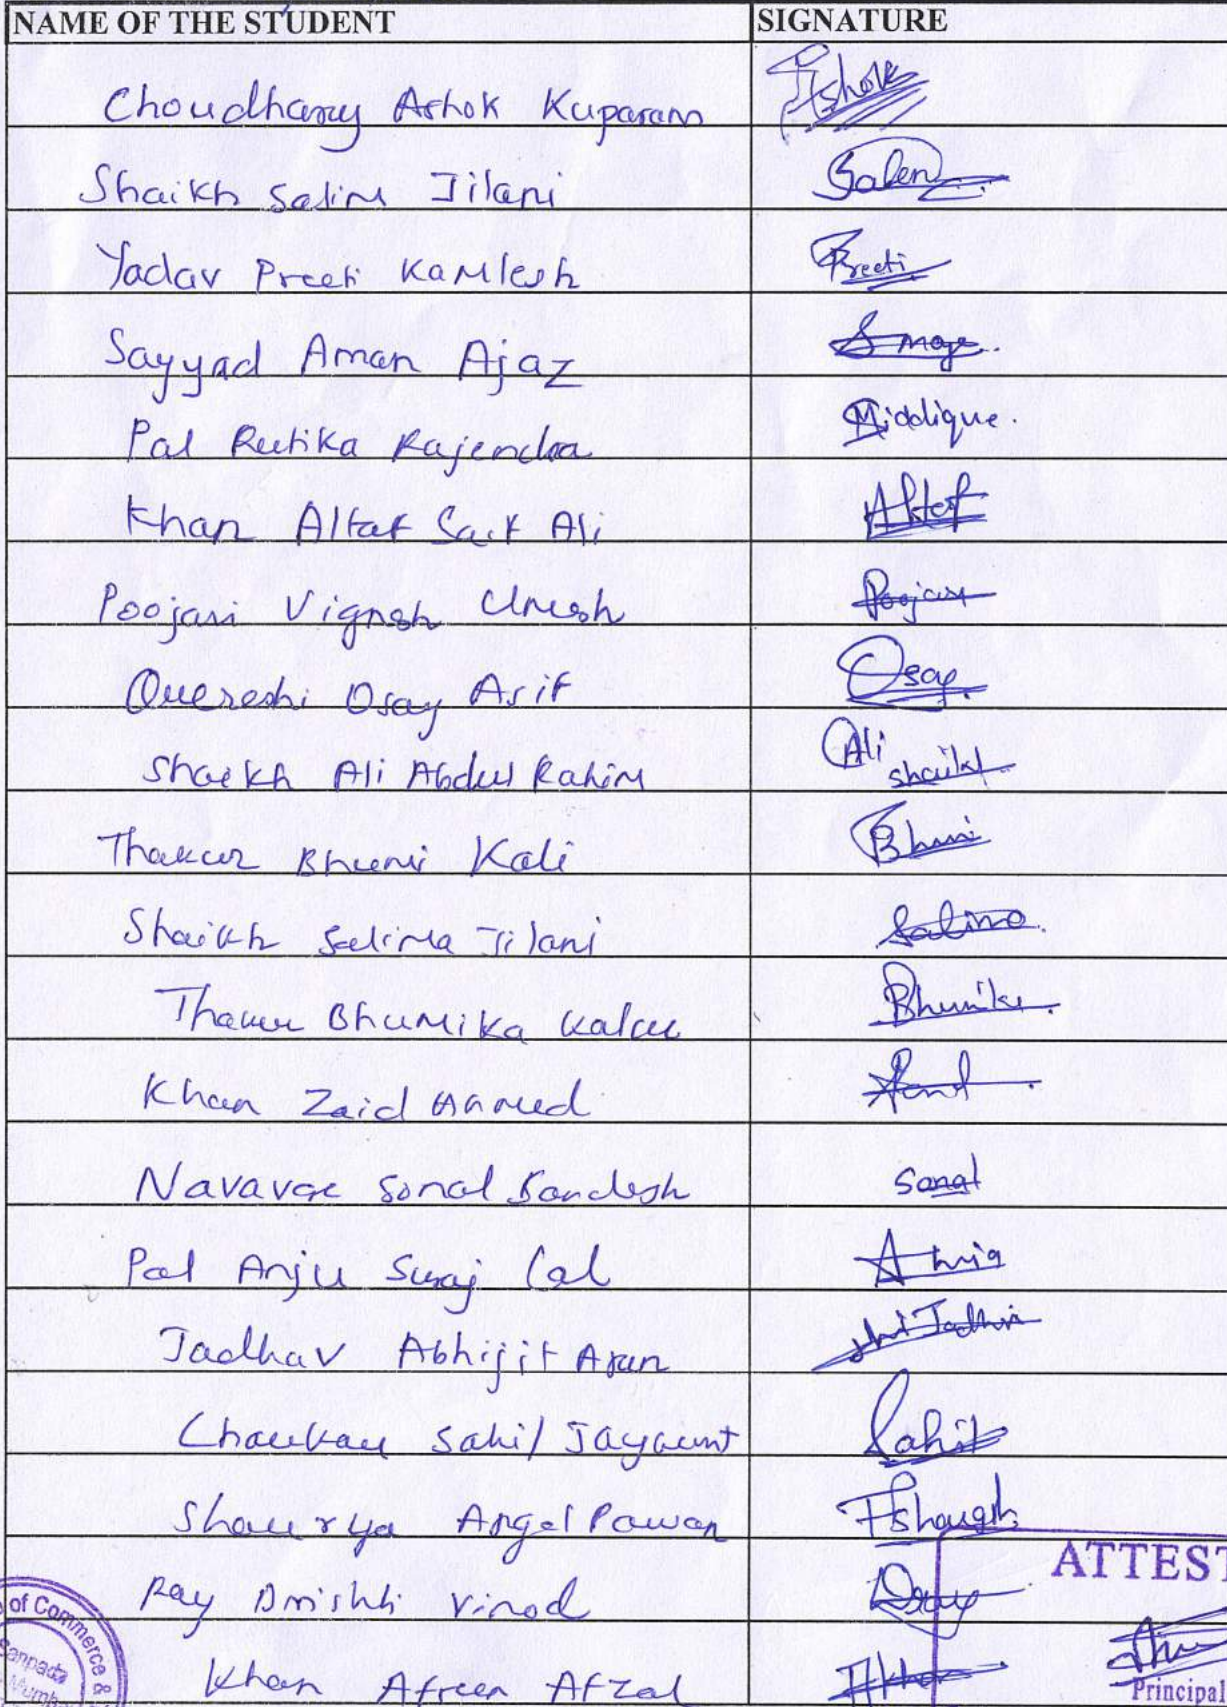 NAME OF THE STUDENT SIGNATURE
Choudhary Ashok Kuparam Ashok
Shaikh Salim Jilani Salem
Yadav Preeti Kamlesh Preeti
Sayyad Aman Ajaz
Pal Rutika Rajendra Middique.
Khan Altaf Saif Ali Altaf
Poojari Vignesh Umesh Poojari
Quereshi Osay Asif Osay.
Shaikh Ali Abdul Rahim Ali shaikh
Thakur Bhumi Kali Bhumi
Shaikh Salima Jilani Salima
Thakur Bhumika Kalu Bhumika
Khan Zaid Ahmed
Navavge Sonal Sandesh Sonal
Pal Anju Suraj Lal
Jadhav Abhijit Arun Jadhav
Chauhan Sahil Jayaunt Sahil
Shaurya Angel Pawan
Ray Drishti Vinod Dray
Khan Afreen Afzal AKhan
of Commerce &
Sanpada
ATTEST
Principal